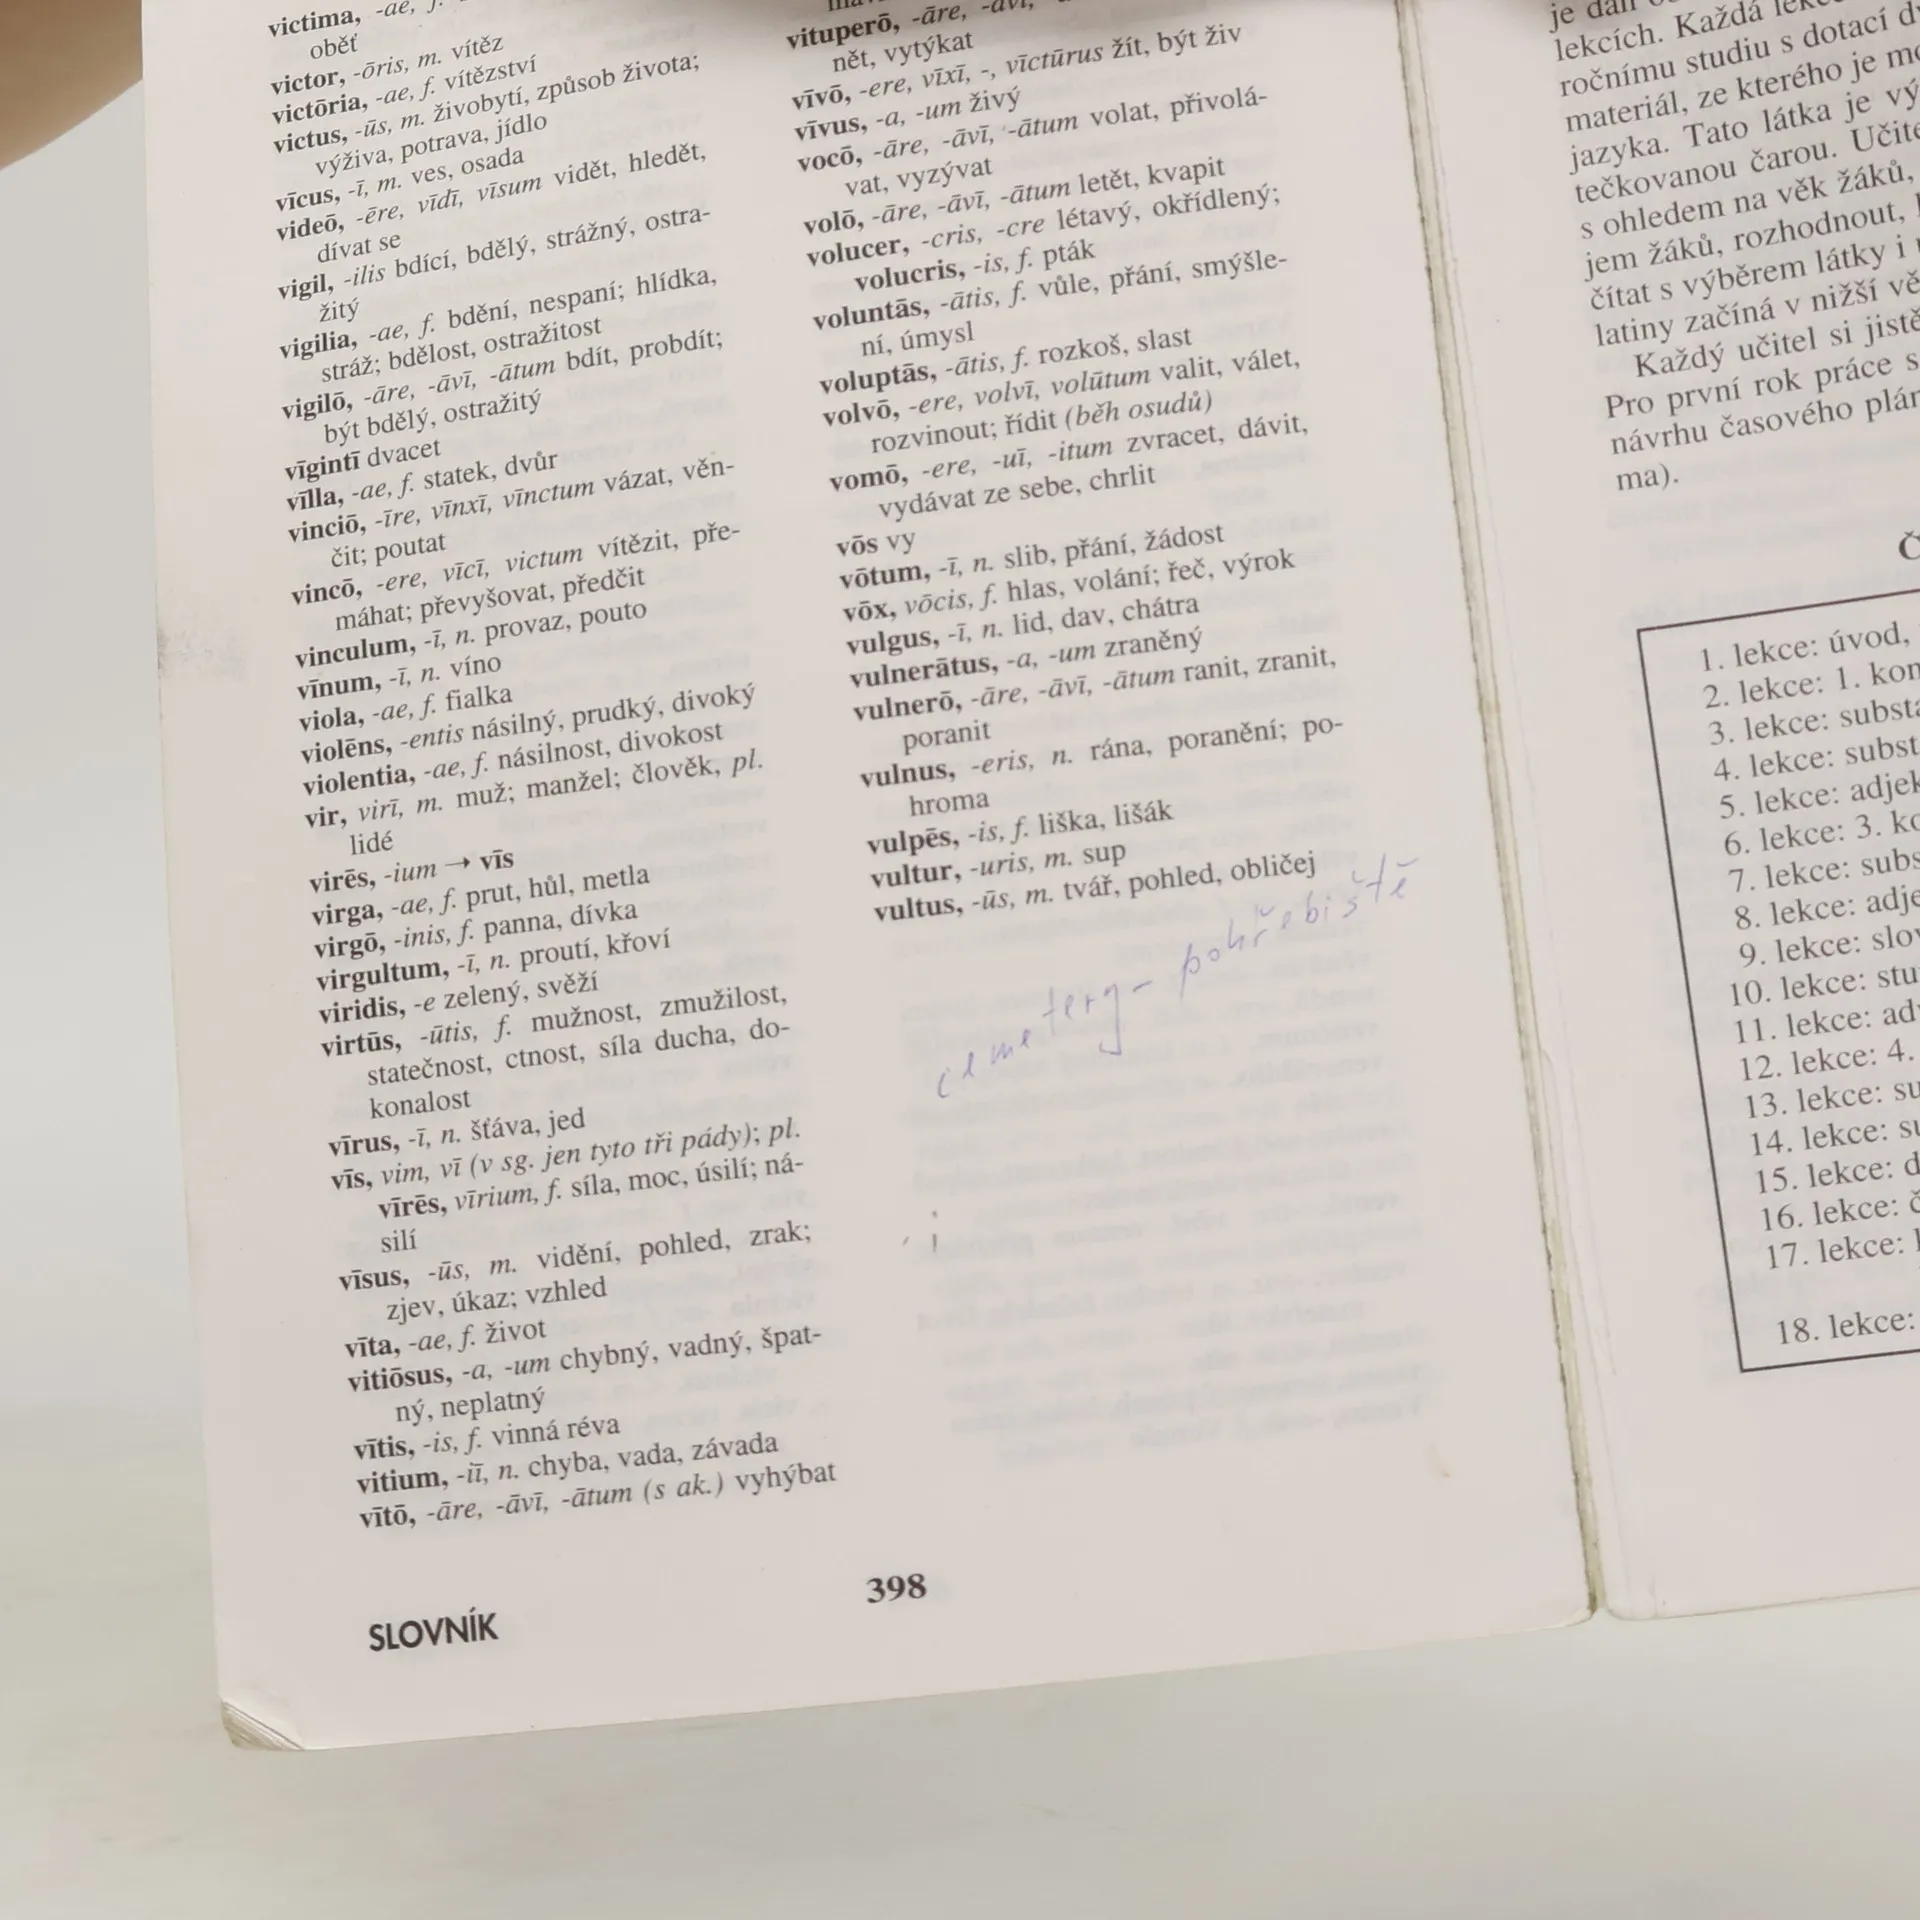 victima, -ae, f.
oběť
victor, -ōris, m. vítěz
victōria, -ae, f. vítězství
victus, -ūs, m. živobytí, způsob života;
výživa, potrava, jídlo
vīcus, -ī, m. ves, osada
videō, -ēre, vīdī, vīsum vidět, hledět,
dívat se
vigil, -ilis bdící, bdělý, strážný, ostra-
žitý
vigilia, -ae, f. bdění, nespaní; hlídka,
stráž; bdělost, ostražitost
vigilō, -āre, -āvī, -ātum bdít, probdít;
být bdělý, ostražitý
vīgintī dvacet
vīlla, -ae, f. statek, dvůr
vinciō, -īre, vīnxī, vīnctum vázat, věn-
čit; poutat
vincō, -ere, vīcī, victum vítězit, pře-
máhat; převyšovat, předčit
vinculum, -ī, n. provaz, pouto
vīnum, -ī, n. víno
viola, -ae, f. fialka
violēns, -entis násilný, prudký, divoký
violentia, -ae, f. násilnost, divokost
vir, virī, m. muž; manžel; člověk, pl.
lidé
virēs, -ium → vīs
virga, -ae, f. prut, hůl, metla
virgō, -inis, f. panna, dívka
virgultum, -ī, n. proutí, křoví
viridis, -e zelený, svěží
virtūs, -ūtis, f. mužnost, zmužilost,
statečnost, ctnost, síla ducha, do-
konalost
vīrus, -ī, n. šťáva, jed
vīs, vim, vī (v sg. jen tyto tři pády); pl.
vīrēs, vīrium, f. síla, moc, úsilí; ná-
silí
vīsus, -ūs, m. vidění, pohled, zrak;
zjev, úkaz; vzhled
vīta, -ae, f. život
vitiōsus, -a, -um chybný, vadný, špat-
ný, neplatný
vītis, -is, f. vinná réva
vitium, -iī, n. chyba, vada, závada
vītō, -āre, -āvī, -ātum (s ak.) vyhýbat
vituperō, -āre, -āvī,
nět, vytýkat
vīvō, -ere, vīxī, -, vīctūrus žít, být živ
vīvus, -a, -um živý
vocō, -āre, -āvī, -ātum volat, přivolá-
vat, vyzývat
volō, -āre, -āvī, -ātum letět, kvapit
volucer, -cris, -cre létavý, okřídlený;
volucris, -is, f. pták
voluntās, -ātis, f. vůle, přání, smýšle-
ní, úmysl
voluptās, -ātis, f. rozkoš, slast
volvō, -ere, volvī, volūtum valit, válet,
rozvinout; řídit (běh osudů)
vomō, -ere, -uī, -itum zvracet, dávit,
vydávat ze sebe, chrlit
vōs vy
vōtum, -ī, n. slib, přání, žádost
vōx, vōcis, f. hlas, volání; řeč, výrok
vulgus, -ī, n. lid, dav, chátra
vulnerātus, -a, -um zraněný
vulnerō, -āre, -āvī, -ātum ranit, zranit,
poranit
vulnus, -eris, n. rána, poranění; po-
hroma
vulpēs, -is, f. liška, lišák
vultur, -uris, m. sup
vultus, -ūs, m. tvář, pohled, obličej
- pohřebiště
SLOVNÍK
398
je dán
lekcích. Každá
ročnímu studiu s dotací
materiál, ze kterého je
jazyka. Tato látka je
tečkovanou čarou.
s ohledem na věk žáků,
jem žáků, rozhodnout,
čítat s výběrem látky i
latiny začíná v nižší
Každý učitel si
Pro první rok práce s
návrhu časového
ma).
1. lekce: úvod,
2. lekce: 1.
3. lekce:
4. lekce:
5. lekce:
6. lekce: 3.
7. lekce:
8. lekce:
9. lekce:
10. lekce:
11. lekce:
12. lekce: 4.
13. lekce:
14. lekce:
15. lekce:
16. lekce:
17. lekce:
18. lekce: